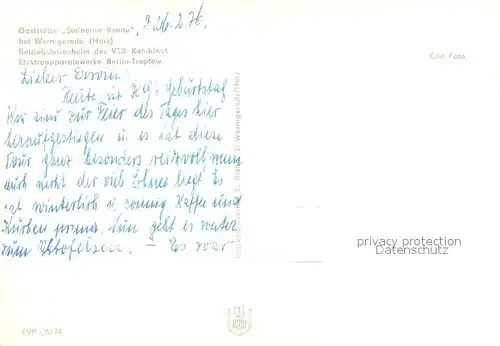 Gaststätte „Steinerne Renne"
bei Wernigerode (Harz)
Betriebsferienheim des VEB Kombinat
Elektroapparatewerke Berlin-Treptow
26.2.76
Echt Foto
Lieber
Heute ist Geburtstag
Wir sind zur Feier des Tages hier
heraufgestiegen u. es ist diese
Tour ganz besonders reizvoll wenn
auch nicht der viele Schnee liegt. Es
ist winterlich u. sonnig Kaffee und
Kuchen prima. Nun geht es weiter
zum Ottofelsen. – Es war
privacy protection
Datenschutz